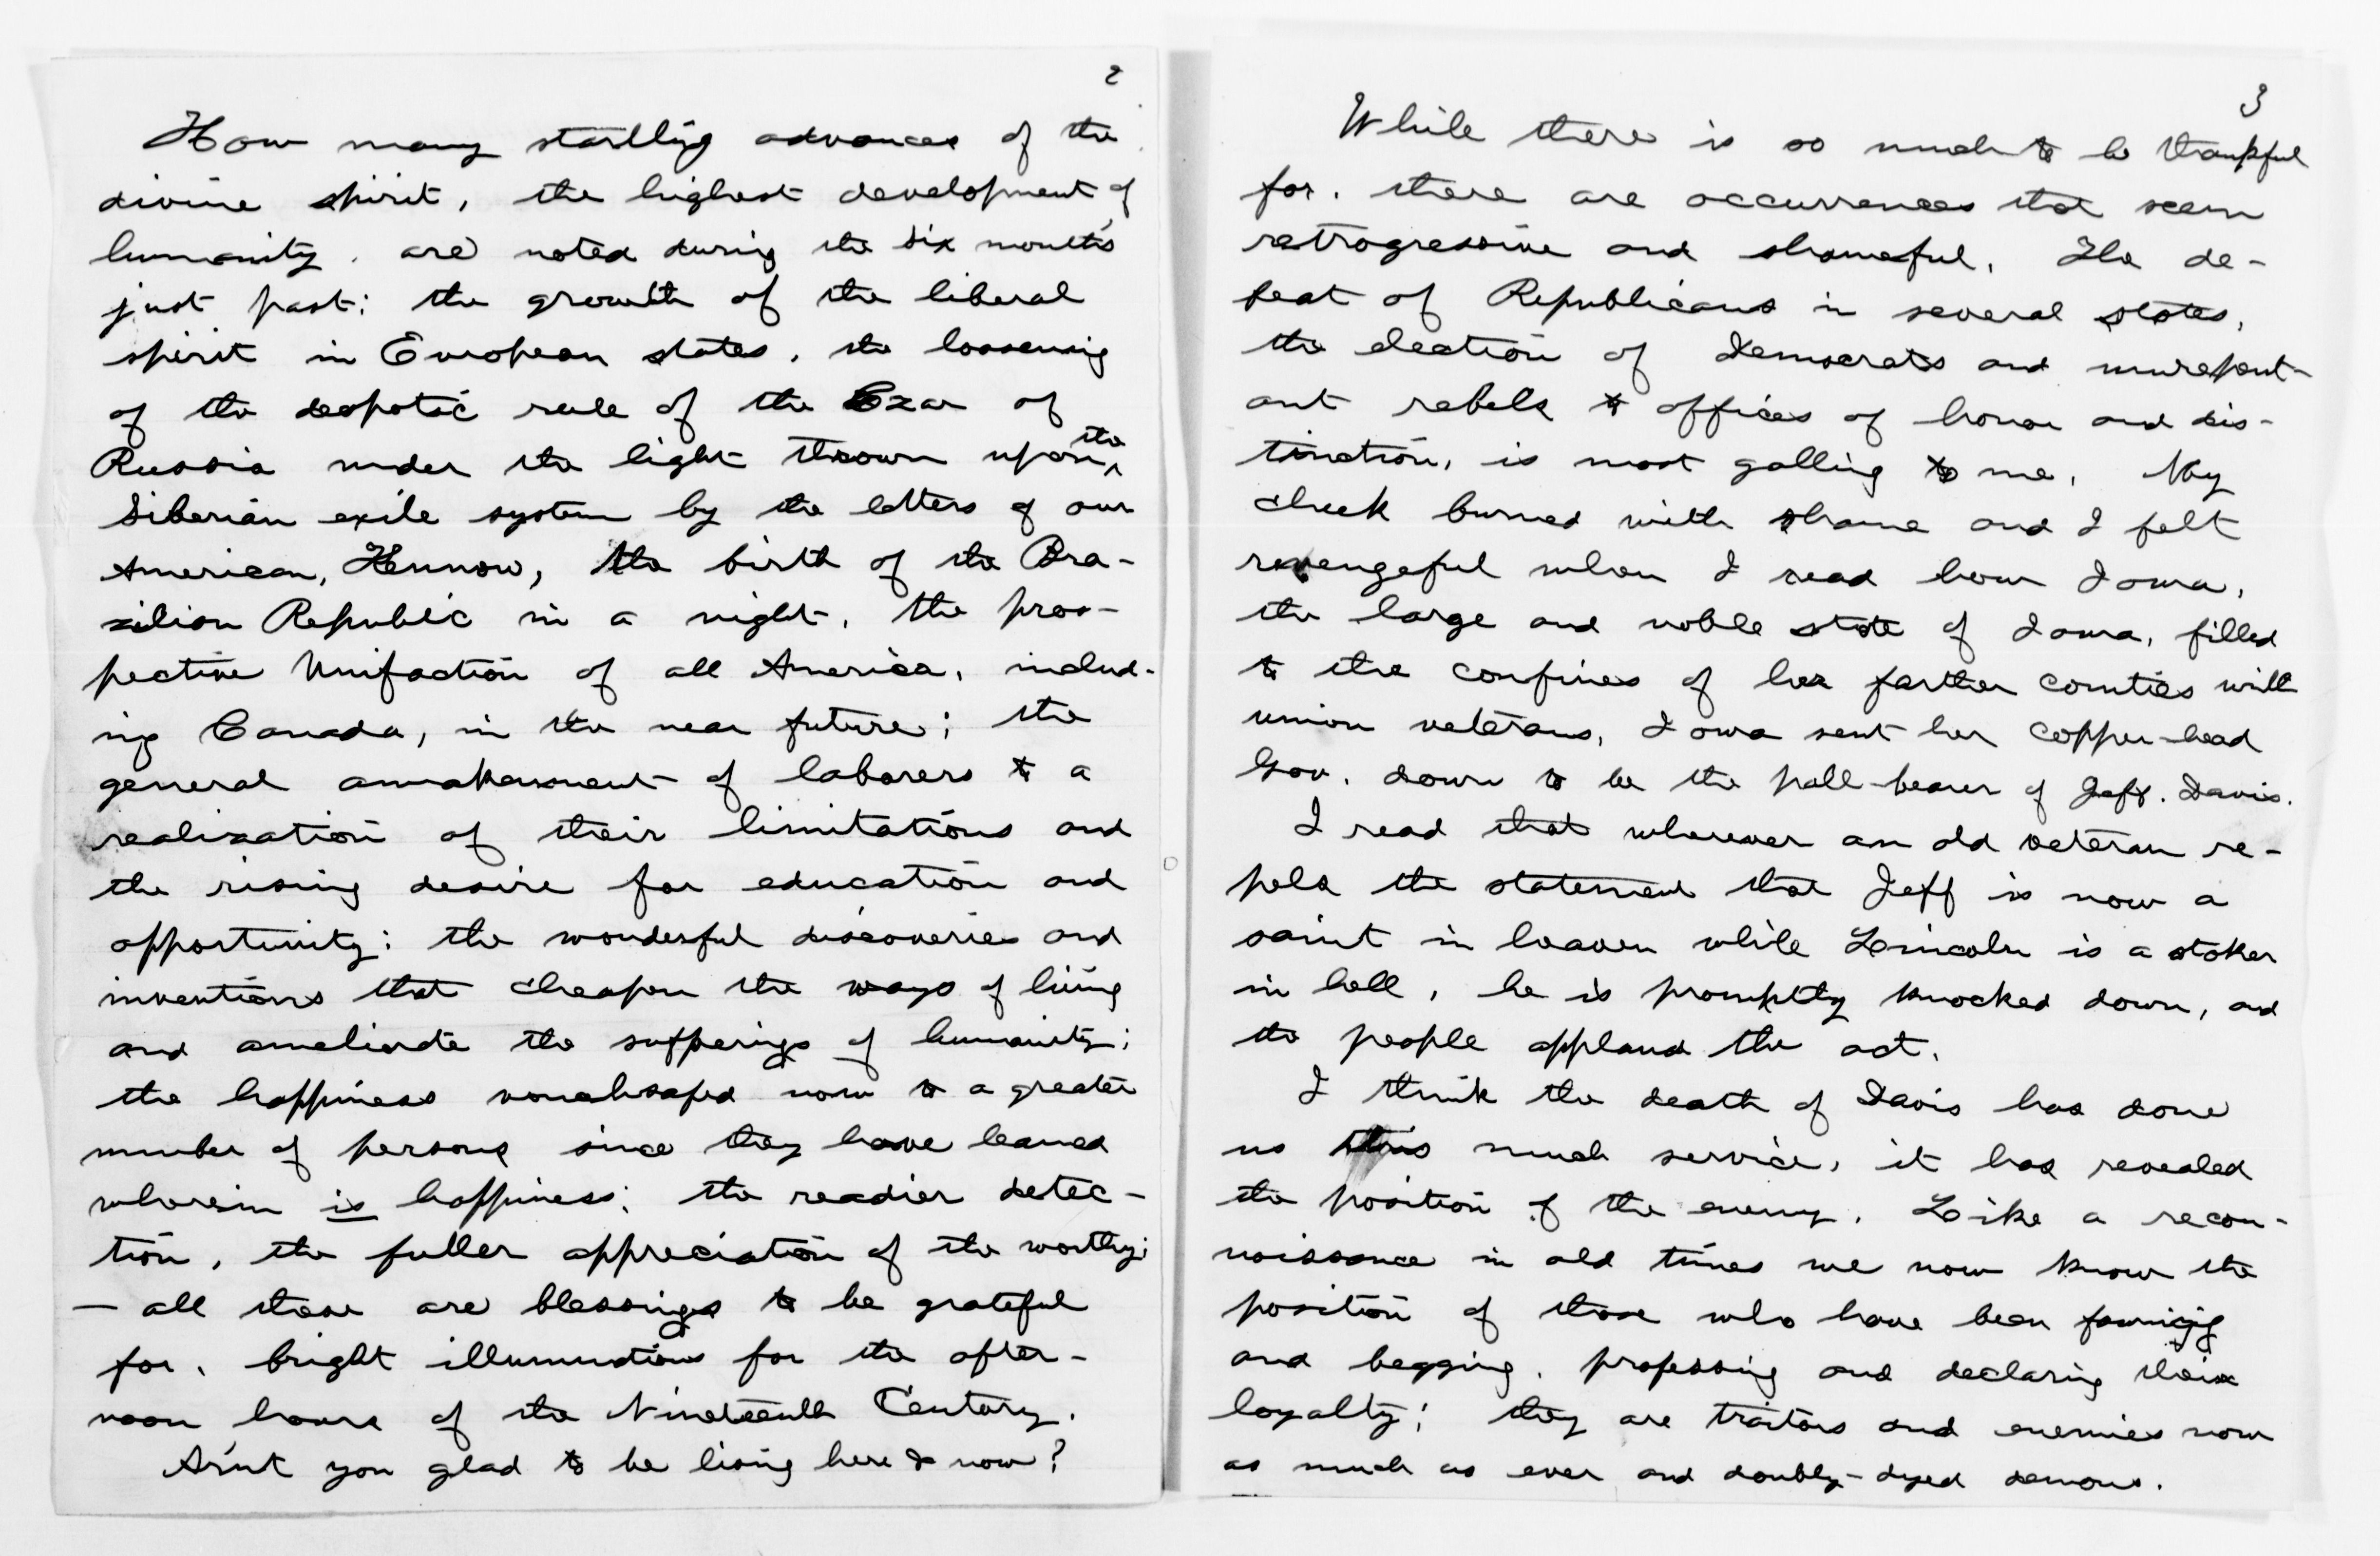 2
How many startling advances of the
divine spirit, the highest development of
humanity, are noted during the six months
just past: the growth of the liberal
spirit in European states, the loosening
of the despotic rule of the Czar of
Russia under the light thrown upon the
Siberian exile system by the letters of our
American, Kennow, the birth of the Bra-
zilian Republic in a night, the pros-
pective Unifaction of all America, includ-
ing Canada, in the near future; the
general awakenment of laborers to a
realization of their limitations and
the rising desire for education and
opportunity; the wonderful discoveries and
inventions that cheapen the ways of living
and ameliorate the sufferings of humanity;
the happiness vouchsafed now to a greater
number of persons since they have learned
wherein is happiness; the readier detec-
tion, the fuller appreciation of the worthy;
— all these are blessings to be grateful
for, bright illuminations for the after-
noon hours of the Nineteenth Century.
Ain't you glad to be living here & now?
3
While there is so much to be thankful
for, there are occurrences that seem
retrogressive and shameful. The de-
feat of Republicans in several states,
the election of Democrats and unrepent-
ant rebels to offices of honor and dis-
tinction, is most galling to me. My
cheek burned with shame and I felt
revengeful when I read how Iowa,
the large and noble state of Iowa, filled
to the confines of her farther counties with
union veterans, Iowa sent her copper-head
Gov. down to be the pall-bearer of Jeff. Davis.
I read that wherever an old veteran re-
pels the statement that Jeff is now a
saint in heaven while Lincoln is a stoker
in hell, he is promptly knocked down, and
the people applaud the act.
I think the death of Davis has done
us this much service, it has revealed
the position of the enemy. Like a recon-
noissance in old times we now know the
position of those who have been fawning
and begging, professing and declaring their
loyalty; they are traitors and enemies now
as much as ever and doubly-dyed demons.